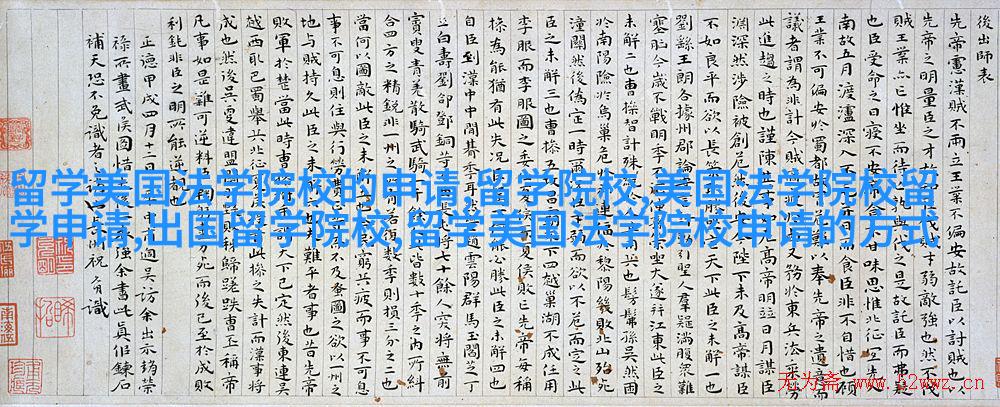 後出師表
先帝慮漢賊不兩立王業不偏安故託臣以討賊也以
先帝之明量臣之才故知臣伐賊才弱敵強也然不伐
賊王業亦亡惟坐而待亡孰與伐之是故託臣而弗疑
也臣受命之日寢不安席食不甘味思惟北征宜先入
南故五月渡瀘深入不毛并日而食臣非不自惜也顧
王業不可偏安於蜀都故冒危難以奉先帝之遺意而
議者謂為非計今賊適疲於西又務於東兵法乘勞
此進趨之時也謹陳其事如左高帝明並日月謀臣
淵深然涉險被創危然後安今陛下未及高帝謀臣
不如良平而欲以長策取勝坐定天下此臣之未解一也
劉繇王朗各據州郡論安言計動引聖人羣疑滿腹眾難
塞胸今歲不戰明年不征使孫策坐大遂并江東此臣之
未解二也曹操智計殊絕於人其用兵也髣髴孫吳然困
於南陽險於烏巢危於祁連偪於黎陽幾敗北山殆死
潼關然後偽定一時爾況臣才弱而欲以不危而定之此
臣之未解三也曹操五攻昌霸不下四越巢湖不成任用
李服而李服圖之委任夏侯而夏侯敗亡先帝每稱
操為能猶有此失況臣駑下何能必勝此臣之未解四也
自臣到漢中中間朞年耳然喪趙雲陽羣馬玉閻芝丁
立白壽劉郃鄧銅等及曲長屯將七十餘人突將無前
賨叟青羌散騎武騎一千餘人此皆數十年之內所糾
合四方之精銳非一州之所有若復數年則損三分之二也
當何以圖敵此臣之未解五也今民窮兵疲而事不可息
事不可息則住與行勞費正等而不及蚤圖之欲以一州之
地与賊持久此臣之未解六也夫難平者事也昔先帝
敗軍於楚當此時曹操拊手謂天下已定然後東連吳
越西取巴蜀舉兵北征夏侯授首此操之失計而漢事將
成也然後吳更違盟關羽毀敗秭歸蹉跌曹丕稱帝
凡事如是難可逆料臣鞠躬盡力死而後已至於成敗
利鈍非臣之明所能逆覩也
正德甲戌四月十二日甫過吳訪余出示端榮
祿所畫武侯圖惜後強余書此真似鍊石
補天恐不免識者之長洲祝識
留学美国法学院校的申请,留学院校,美国法学院校留
学申请,出国留学院校,留学美国法学院校申请的方式
无为斋 www.52wwz.cn